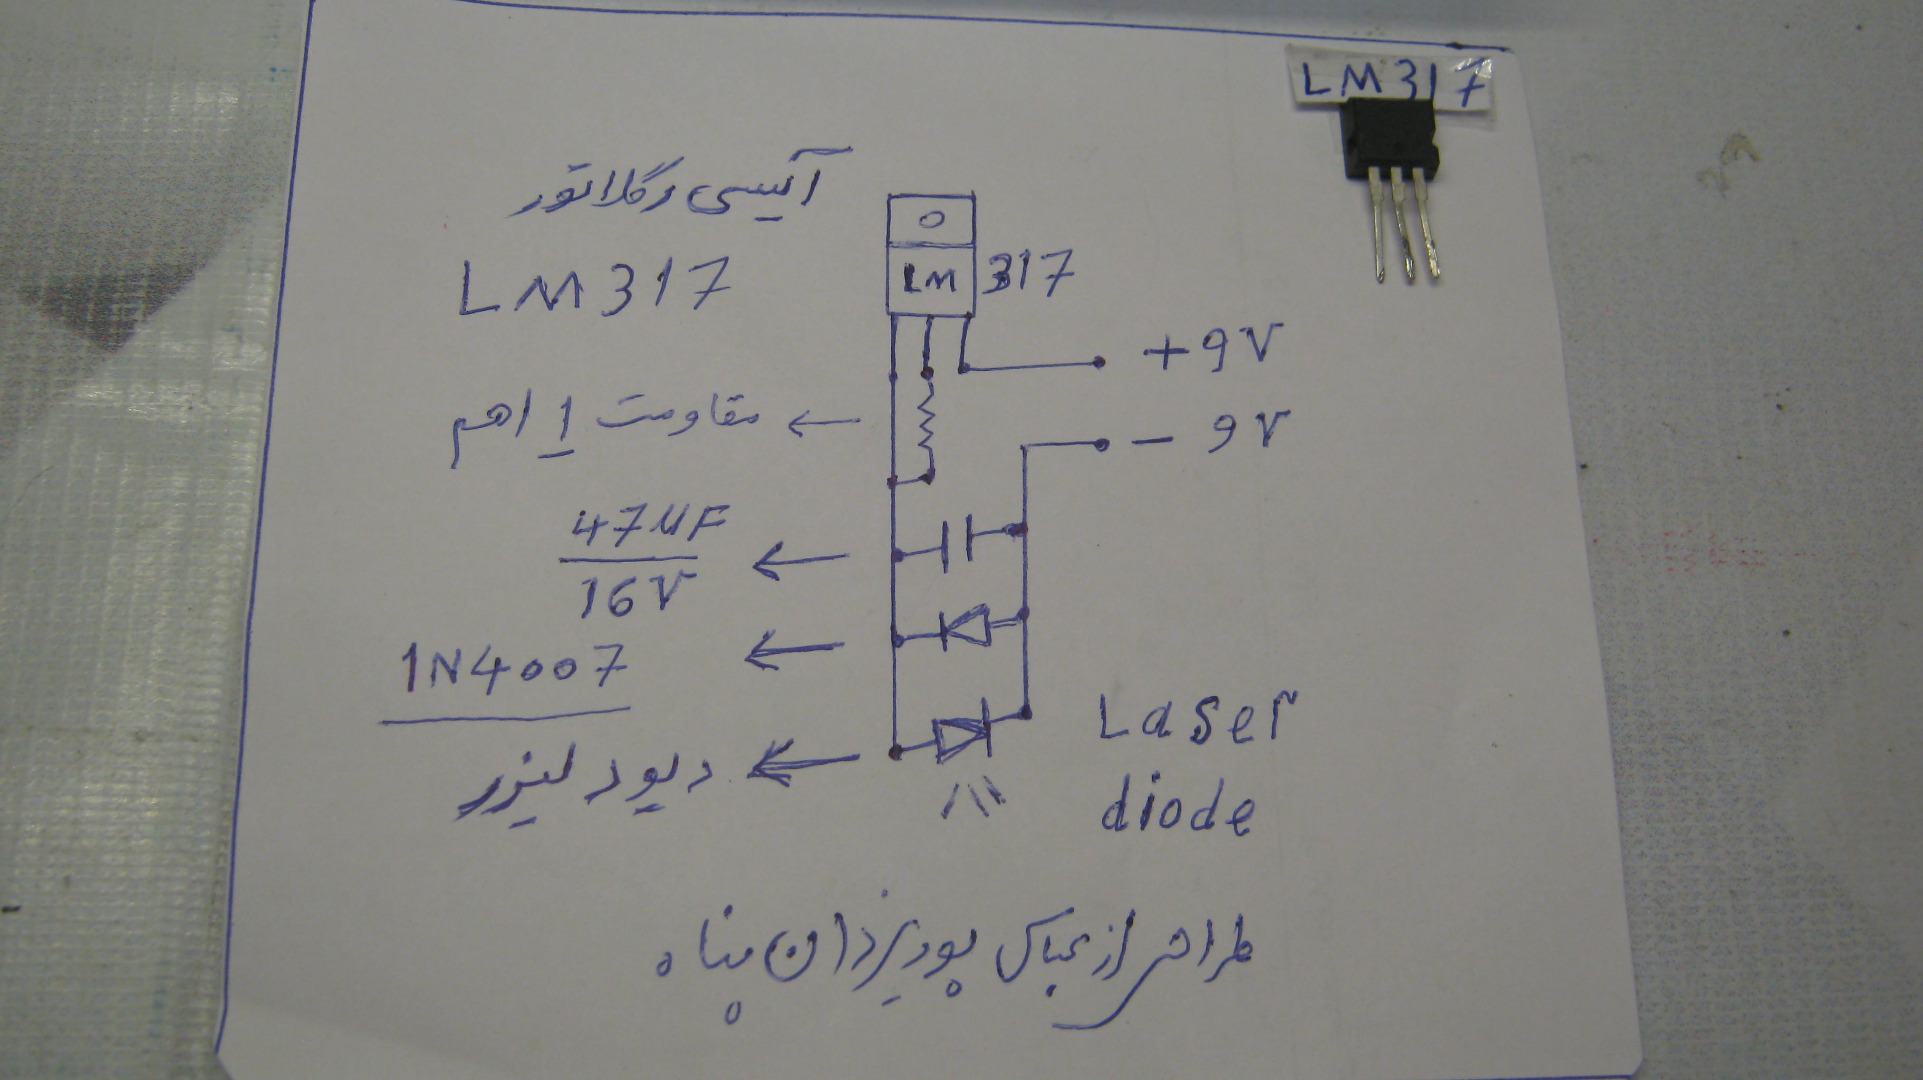 LM317
آیسی رگلاتور
LM317
LM 317
+9V
مقاومت 1 اهم
- 9V
47MF
16V
1N4007
Laser
diode
دیود لیزر
طراحی از عباس پوریزدان پناه